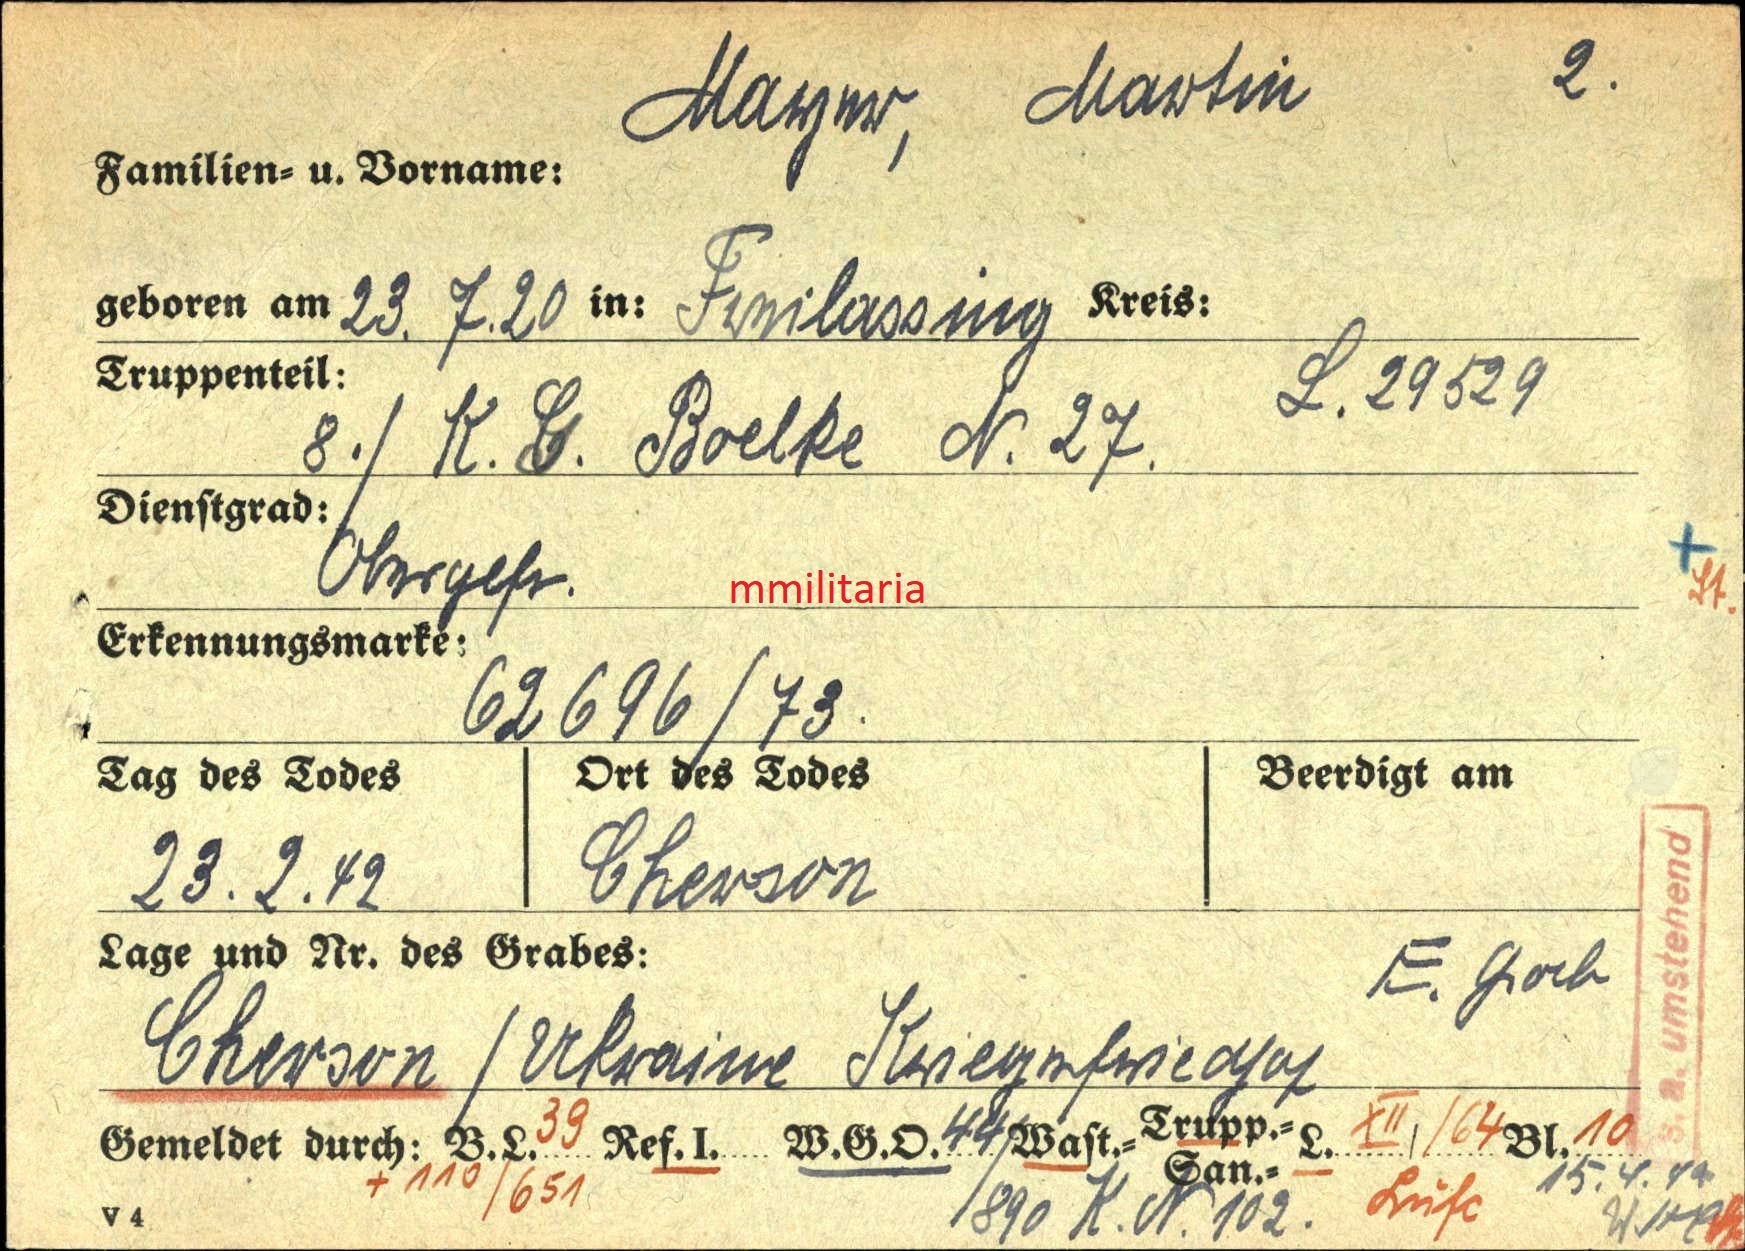 Mayer, Martin 2.
Familien- u. Vorname:
geboren am 23. 7. 20 in: Freilassing Kreis:
Truppenteil: L. 29529
8./ K. G. Boelke N. 27.
Dienstgrad:
Obergefr.
mmilitaria
Erkennungsmarke:
62696/73.
Tag des Todes Ort des Todes Beerdigt am
23. 2. 42 Cherson
Lage und Nr. des Grabes: E. Grab
Cherson / Ukraine Kriegerfriedhof
Gemeldet durch: B.L. 39 Ref. I. W.G.O. 44 Wast.- Trupp.- San.- L. XII / 64 Bl. 10
+ 110/651 /890 K. N. 102. Lufc 15. 4. 42
V 4
+
St.
s. a. umstehend